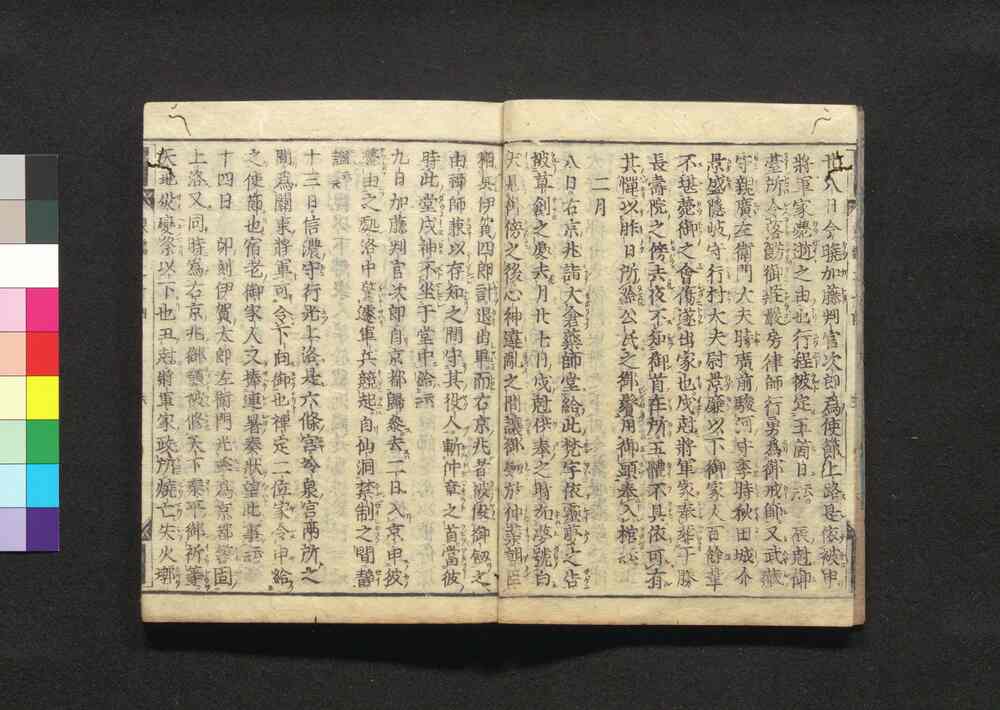 廿八日今曉加藤判官次郎為使節上路是依被申
將軍家薨逝之由也行程被定五箇日云云辰尅御
臺所令落餝御莊嚴房律師行勇為御戒師又武藏
守親廣左衛門大夫時廣前駿河守季時秋田城介
景盛隱岐守行村大夫尉景廉以下御家人百餘輩
不堪薨御之會傷遂出家也戌尅將軍家奉葬于勝
長壽院之傍去夜不知御首在所五體不具依可有
其憚以昨日所給公氏之御鬢用御頭奉入棺云云
二月
八日右京兆詣大倉藥師堂給此梵宇依靈夢之告
被草創之處去月廿七日戌尅供奉之時如夢號白
犬見御傍之後心神違亂之間讓御劔於仲章朝臣
相具伊賀四郎計退出畢而右京兆者被役御劔之
由禪師兼以存知之間守其役人斬仲章之首當彼
時此堂戌神不坐于堂中給云云
九日加藤判官次郎自京都歸參去二日入京申彼
薨由之處洛中驚遽軍兵競起自仙洞禁制之間靜
謐矣
十三日信濃守行光上洛是六條宮冷泉宮兩所之
間為關東將軍可令下向御也禪定二位家令申給
之使節也宿老御家人又捧連署奏狀望此事云云
十四日 卯刻伊賀太郎左衛門光季為京都警固
上洛又同時為右京兆御願被修天下泰平御祈等
天地災變祭以下也丑尅將軍家政所燒亡失火